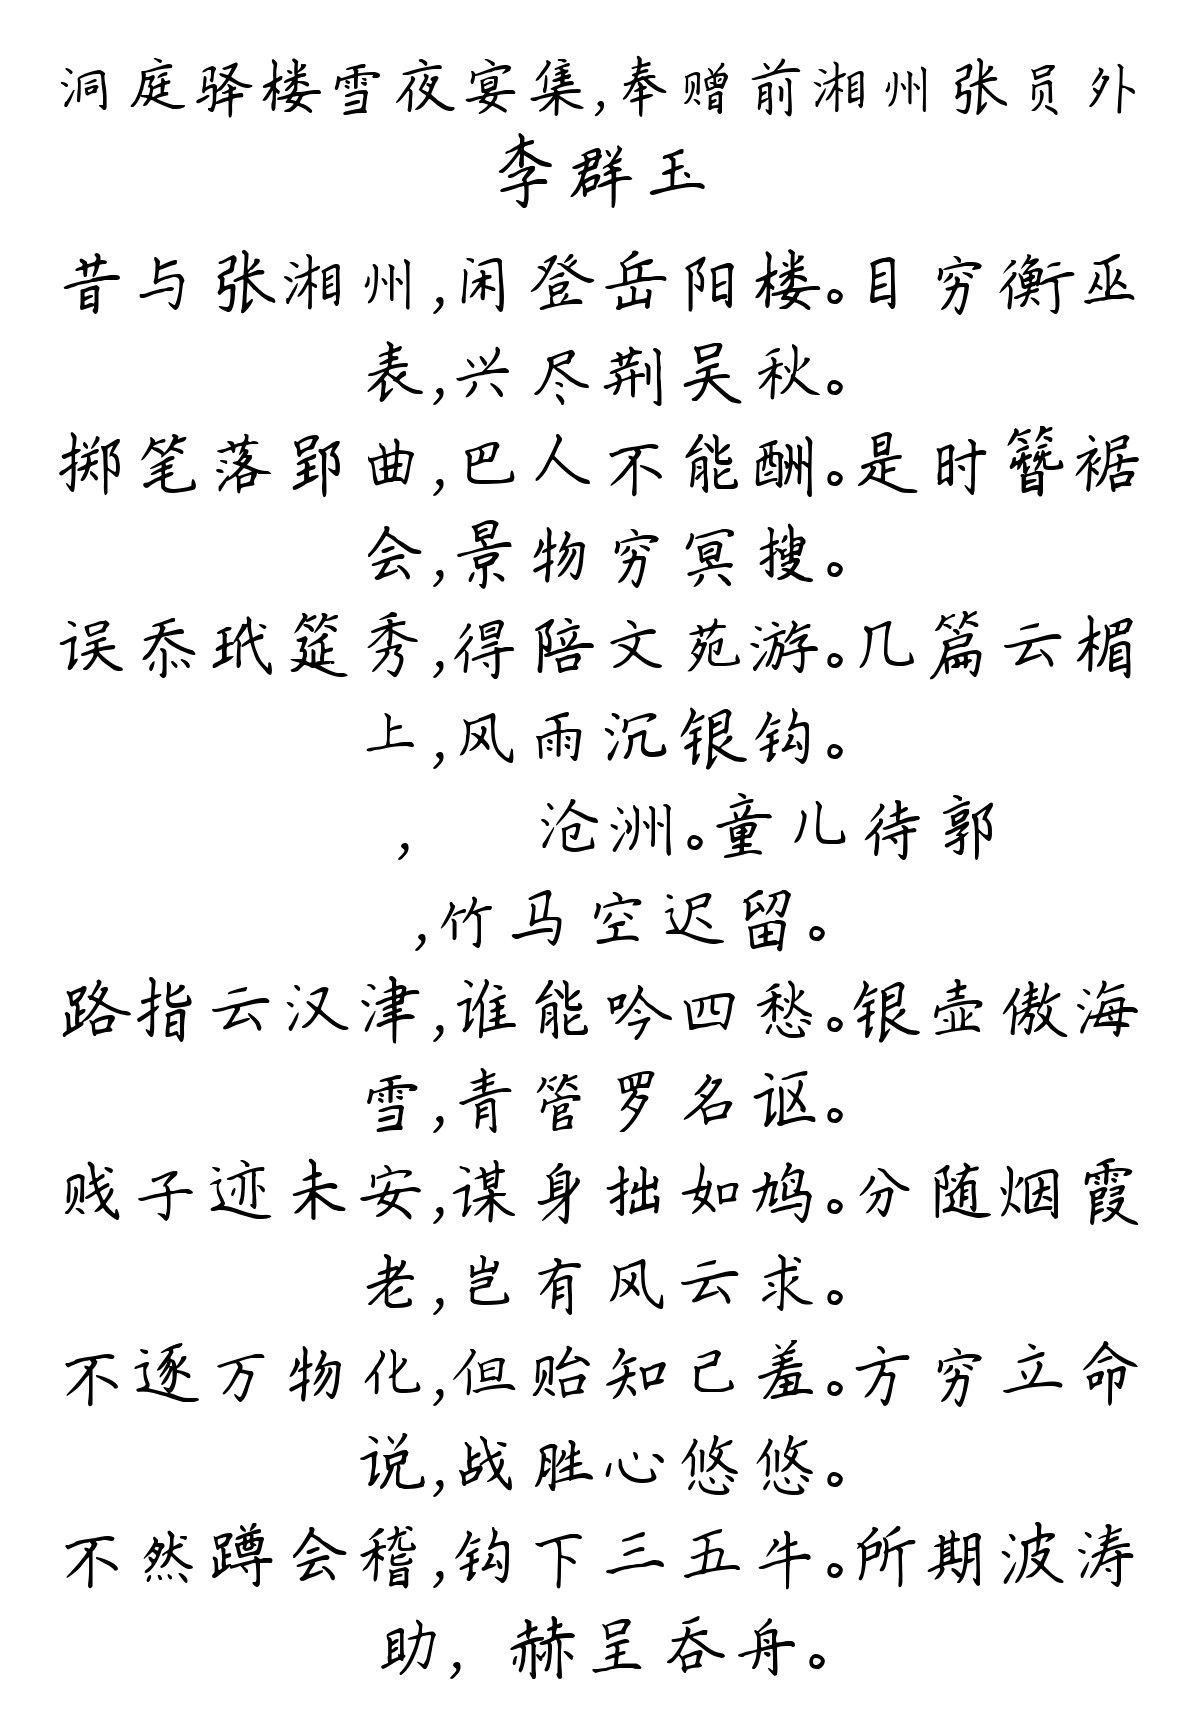 洞庭驿楼雪夜宴集,奉赠前湘州张员外
李群玉
昔与张湘州,闲登岳阳楼。目穷衡巫
表,兴尽荆吴秋。
掷笔落郢曲,巴人不能酬。是时簪裾
会,景物穷冥搜。
误忝玳筵秀,得陪文苑游。几篇云楣
上,风雨沉银钩。
, 沧洲。童儿待郭
,竹马空迟留。
路指云汉津,谁能吟四愁。银壶傲海
雪,青管罗名讴。
贱子迹未安,谋身拙如鸠。分随烟霞
老,岂有风云求。
不逐万物化,但贻知己羞。方穷立命
说,战胜心悠悠。
不然蹲会稽,钩下三五牛。所期波涛
助,赫呈吞舟。